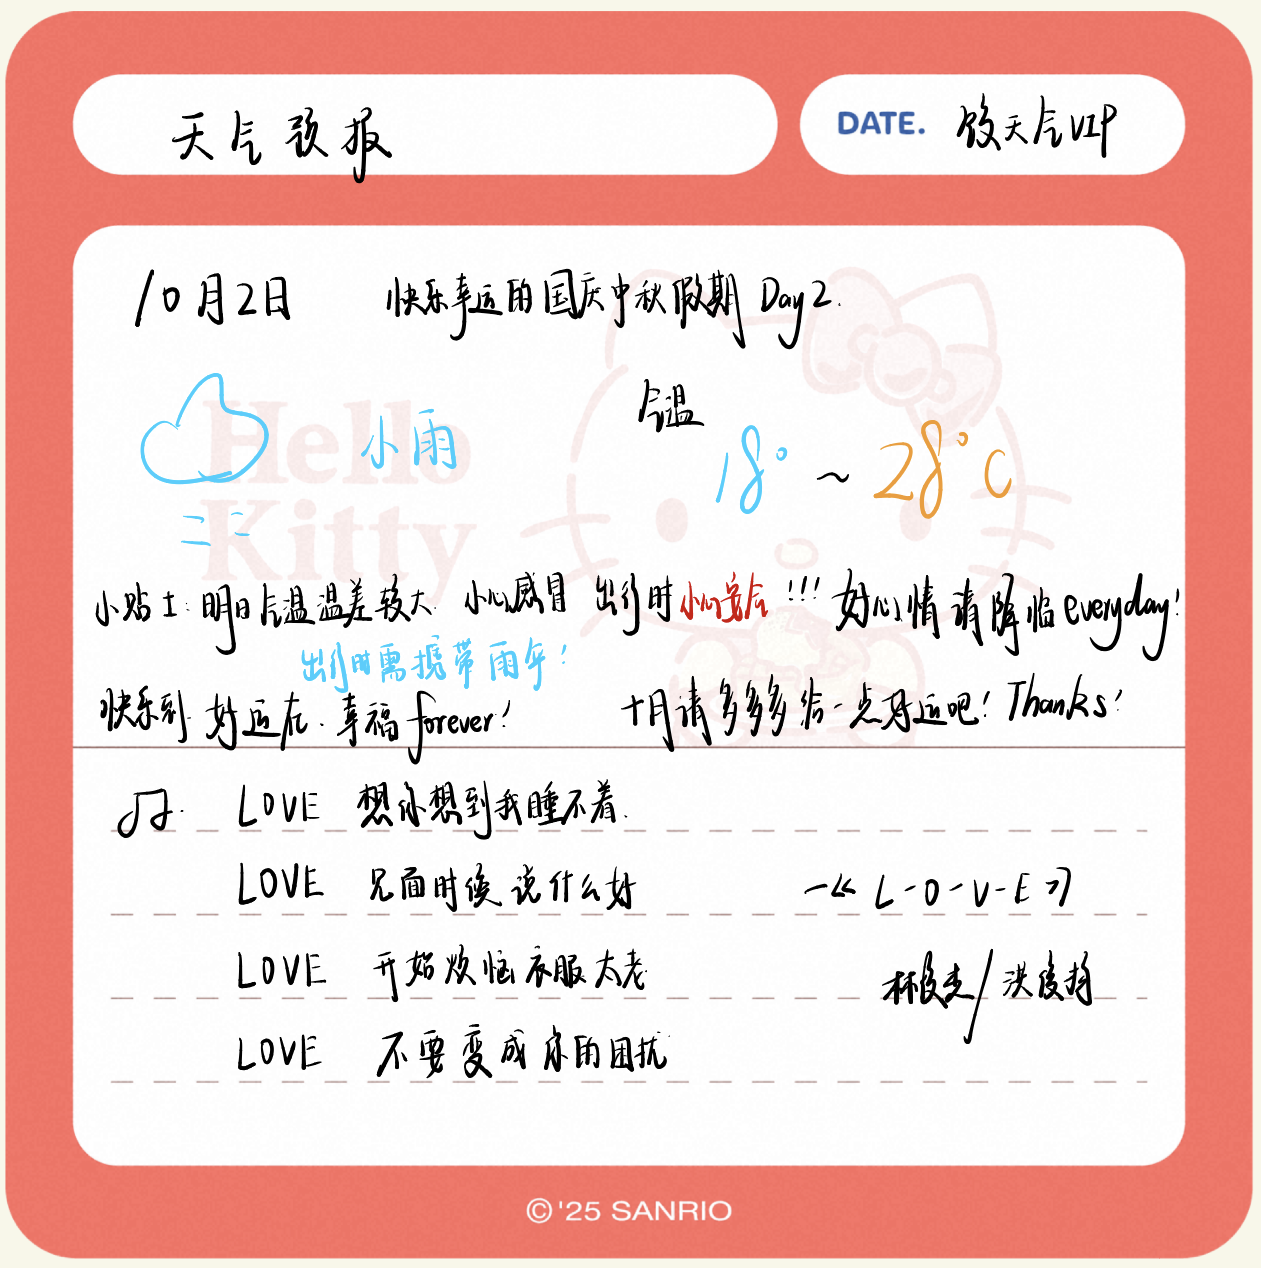 天气预报
DATE. 饺天气VIP
10月2日 快乐幸运的国庆中秋假期 Day2.
Hello Kitty
小雨
气温
18° ~ 28°C
小贴士:明日气温温差较大 小心感冒 出行时小心安全!!! 好心情请降临everyday!
出行时需携带雨伞!
快乐到.好运在.幸福forever! 十月请多多多给一点好运吧! Thanks!
LOVE 想你想到我睡不着.
LOVE 见面时候说什么好
—《L-O-V-E》
LOVE 开始烦恼衣服太老
林俊杰/洪俊扬
LOVE 不要变成你的困扰
©'25 SANRIO